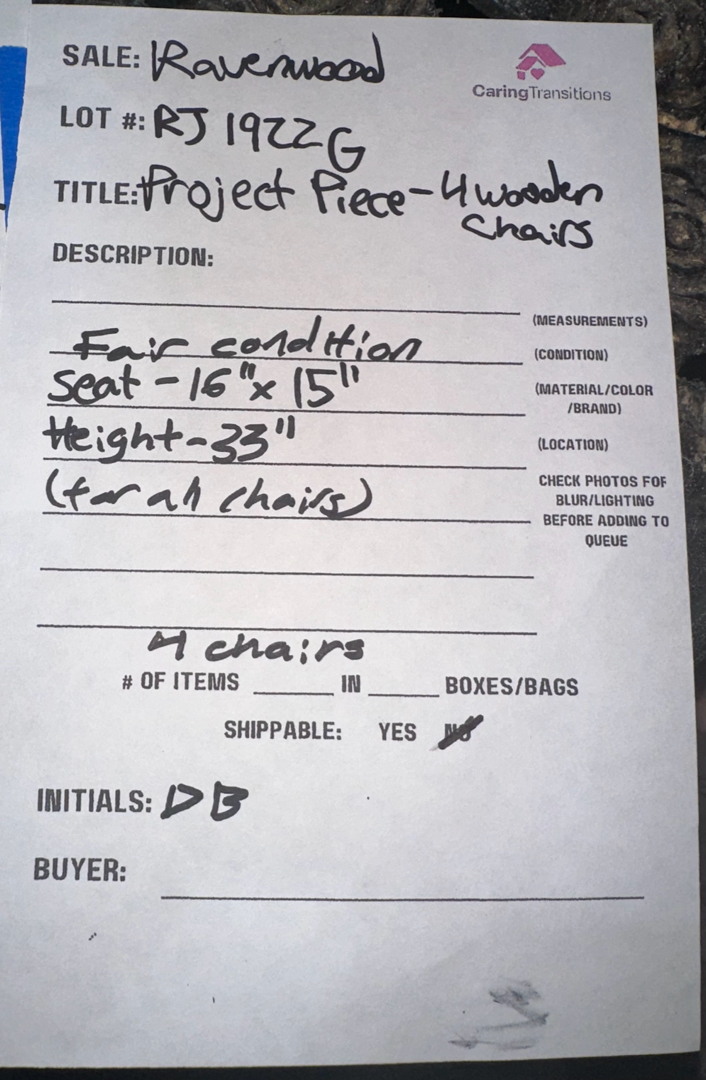 SALE: Ravenwood
CaringTransitions
LOT #: RJ 1922G
TITLE: Project Piece - 4 wooden
chairs
DESCRIPTION:
(MEASUREMENTS)
Fair condition
(CONDITION)
Seat - 16" x 15"
(MATERIAL/COLOR
/BRAND)
Height - 33"
(LOCATION)
(for all chairs)
CHECK PHOTOS FOR
BLUR/LIGHTING
BEFORE ADDING TO
QUEUE
4 chairs
# OF ITEMS ______ IN ______ BOXES/BAGS
SHIPPABLE: YES NO
INITIALS: DB
BUYER: